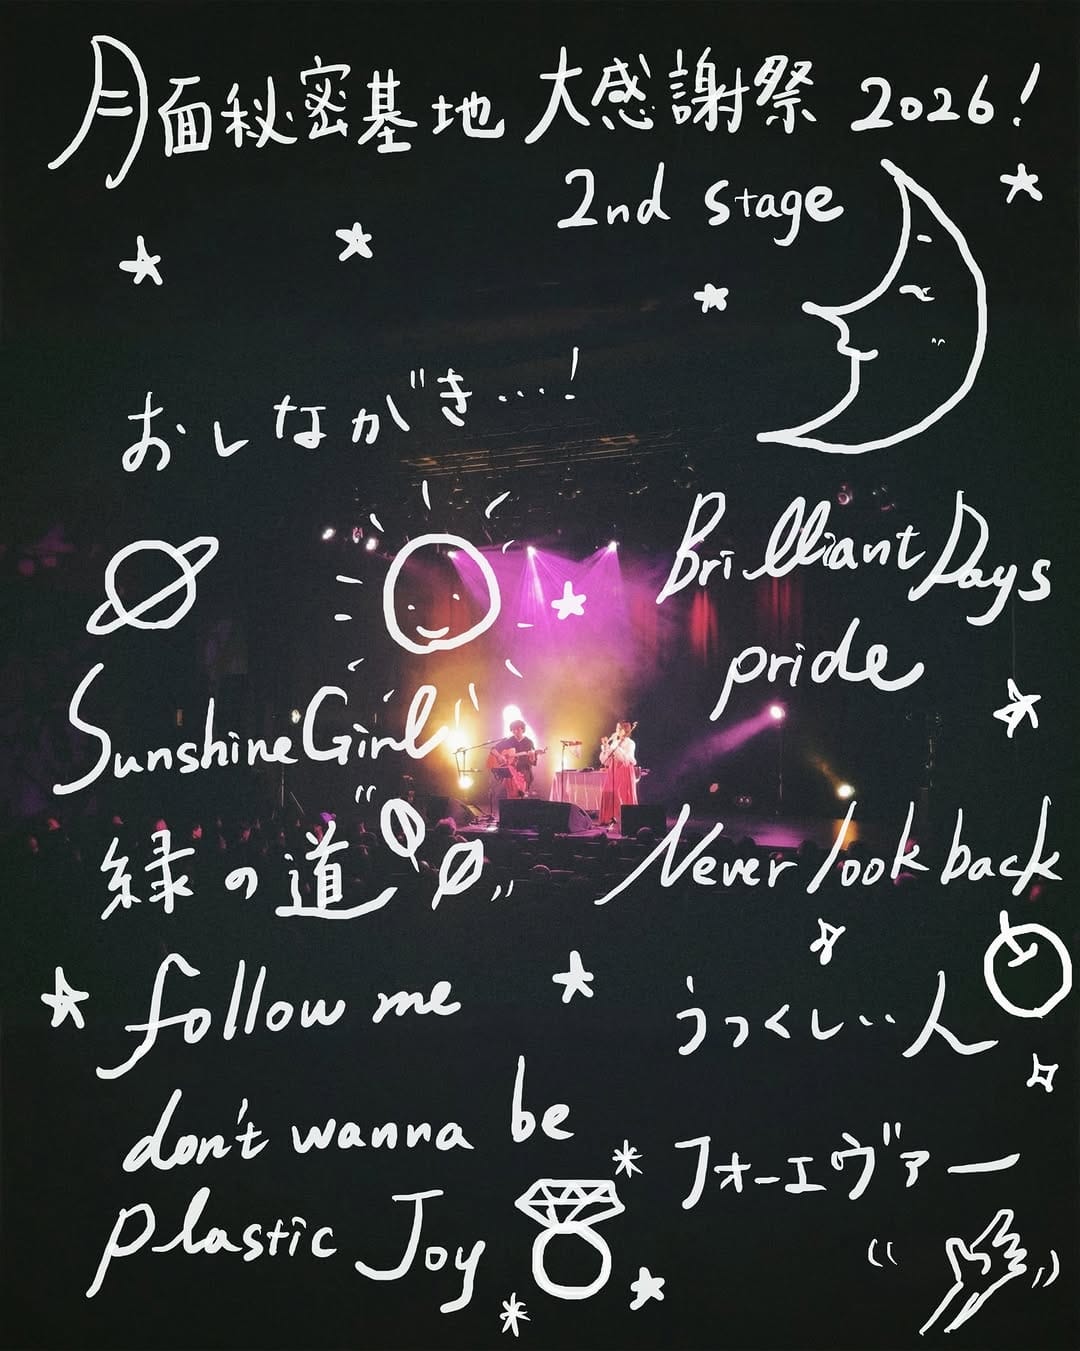 月面秘密基地 大感謝祭 2026!
2nd stage
おしながき…!
Sunshine Girl
緑の道
follow me
don't wanna be
plastic Joy
Brilliant Days
pride
Never look back
うつくしい人
フォーエヴァー